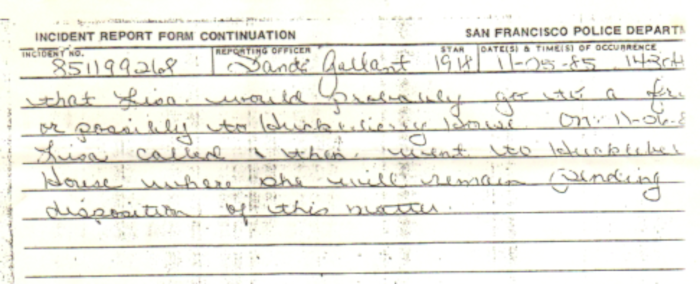 INCIDENT REPORT FORM CONTINUATION SAN FRANCISCO POLICE DEPARTM
INCIDENT NO. REPORTING OFFICER STAR DATE(S) & TIME(S) OF OCCURRENCE
851199268 Sandi Gallant 1918 11-05-85
that Lisa would probably go to a
or possibly to Huckleberry House. On 11-06-8
Lisa called & then went to Huckleber
House where she will remain pending
disposition of this matter.